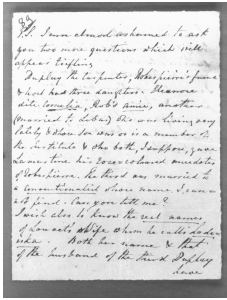 P.S. I am almost ashamed to ask
you two more questions which will
appear trifling.
Duplay the carpenter, Robespierre's friend
& host had three daughters. Eleanore
dite Cornelia, Rob's amie, another
(married to Lebas) who was living very
lately & whose son was or is a member of
the Institute & who both, I suppose, gave
Lamartine his rose coloured anecdotes
of Robespierre. The third was married to
a Conventionalist whose name I cannot
find. Can you tell me?
I wish also to know the real names
of Louvet's wife whom he calls Lodoiska.
Both her name & that
of the husband of the third Duplay